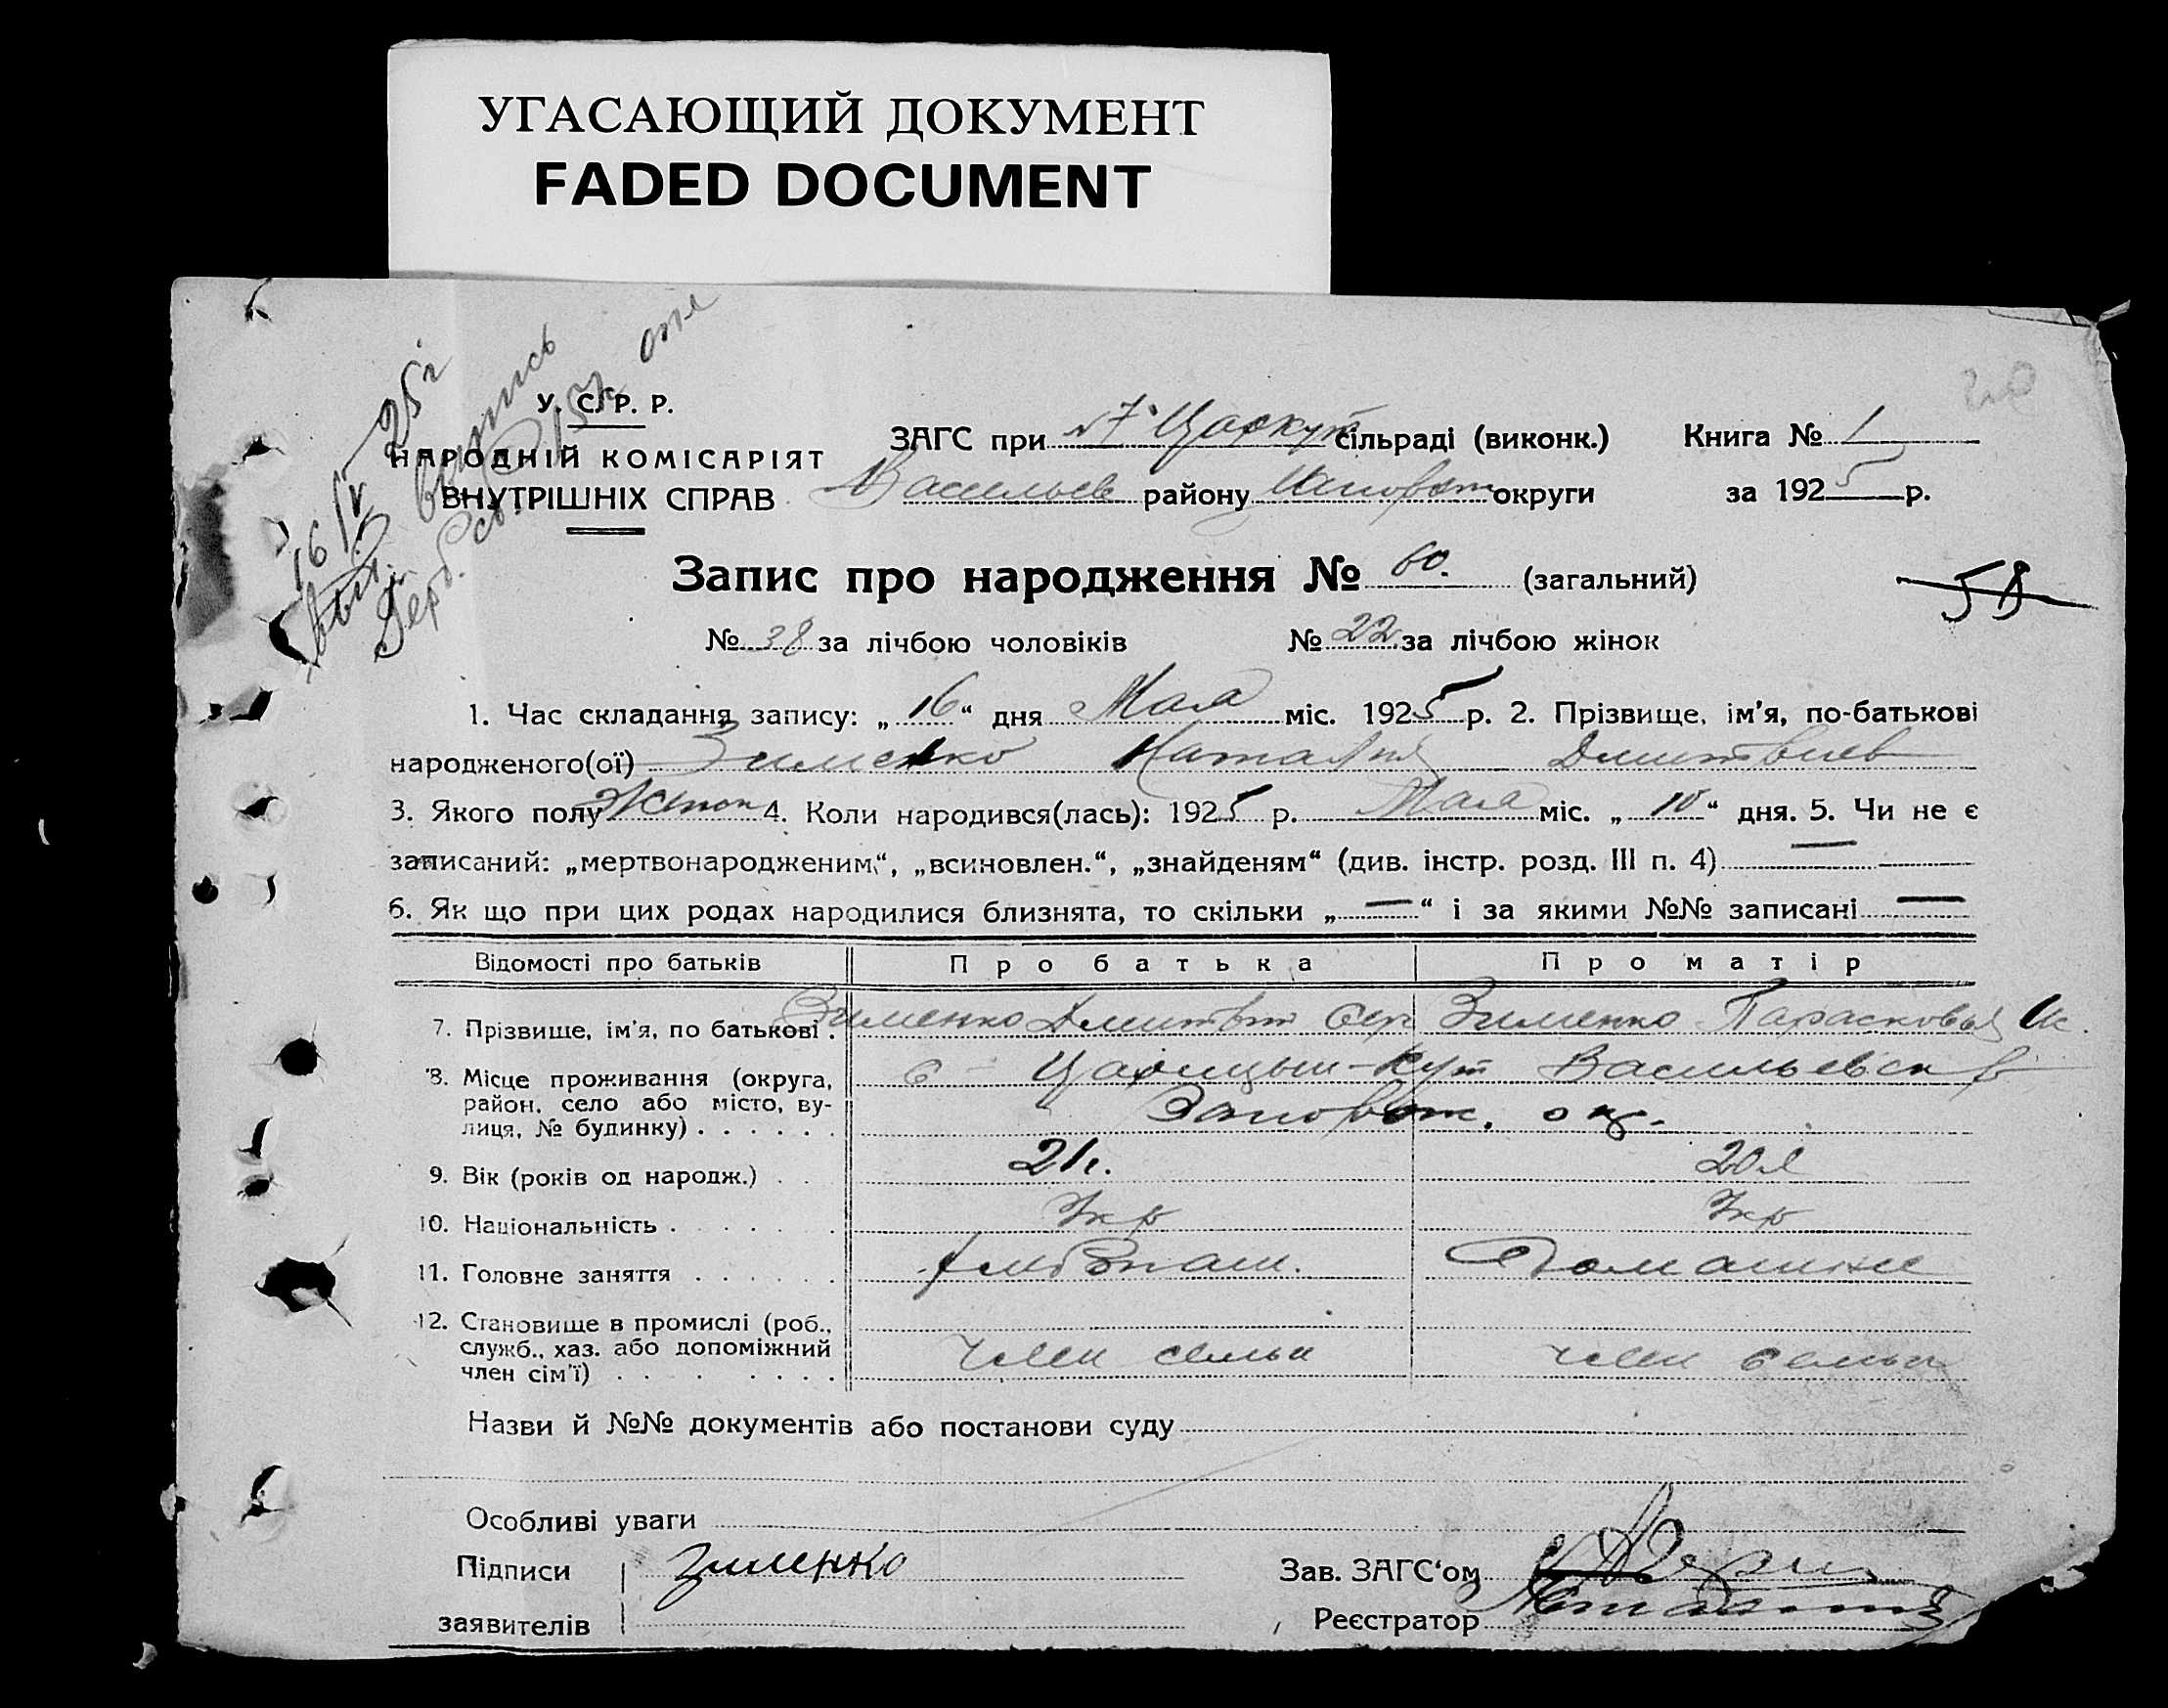 УГАСАЮЩИЙ ДОКУМЕНТ
FADED DOCUMENT
16/V—25 г
выпись
20
У. С. Р. Р.
НАРОДНІЙ КОМІСАРІЯТ
ВНУТРІШНІХ СПРАВ
ЗАГС при №7 Царкут сільраді (виконк.) Книга № 1
Васильев району Запорож округи за 1925 р.
Запис про народження № 60. (загальний)
58
№ 38 за лічбою чоловіків № 22 за лічбою жінок
1. Час складання запису: „16“ дня Мая міс. 1925 р. 2. Прізвище, ім’я, по-батькові
народженого(ої) Зименко Наталия Дмитриев
3. Якого полу Женск 4. Коли народився(лась): 1925 р. Мая міс. „10“ дня. 5. Чи не є
записаний: „мертвонародженим“, „всиновлен.“, „знайденям“ (див. інстр. розд. III п. 4) —
6. Як що при цих родах народилися близнята, то скільки „—“ і за якими №№ записані —
Відомості про батьків Про батька Про матір
7. Прізвище, ім’я, по батькові . Зименко Дмитрий Сер Зименко Парасковья
8. Місце проживання (округа, район, село або місто, вулиця, № будинку) . . . . . . с - Царицын-Кут Васильевск р
Запорож. окр.
9. Вік (років од народж.) . . 21 г. 20 л
10. Національність . . . . . . Укр Укр
11. Головне заняття . . . . . . хлебопаш. Домашнее
12. Становище в промислі (роб.,
служб., хаз. або допоміжний
член сім’ї) . . . . . . . член семьи член семьи
Назви й №№ документів або постанови суду
Особливі уваги
Підписи Зименко Зав. ЗАГС‘ом
заявителів Реєстратор